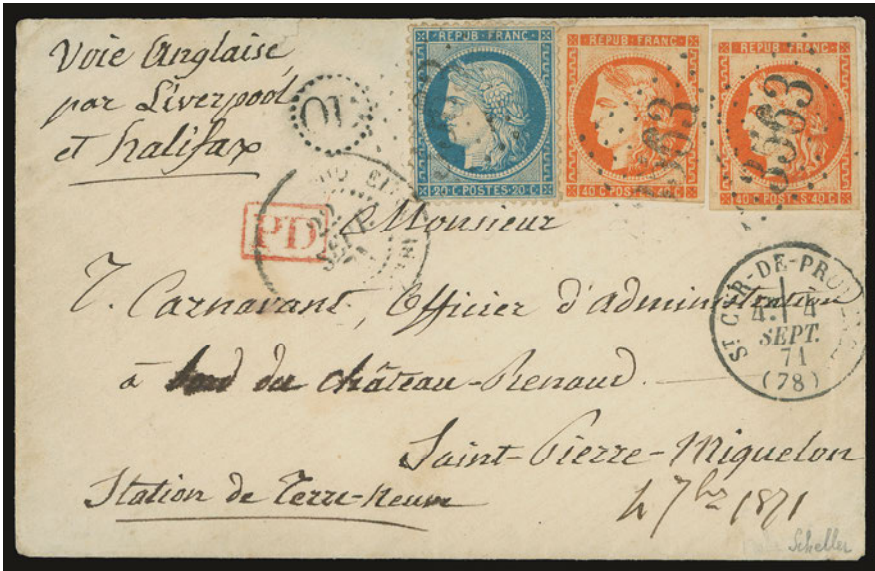 Voie Anglaise,
par Liverpool
et halifax
OL
REPUB · FRANC
20 C · POSTES · 20 C
REPUB · FRANC
40 C · POSTES · 40 C
3563
REPUB · FRANC
40 C · POSTES · 40 C
3563
PD
22
SEPT.
71
Monsieur
T. Carnavant, Officier d'administration
à bord du château-Renaud.
Saint-Pierre-Miquelon
Station de Terre-neuve
4 7bre 1871
ST. CYR-DE-PROVENCE
4
SEPT.
71
(78)
Scheller